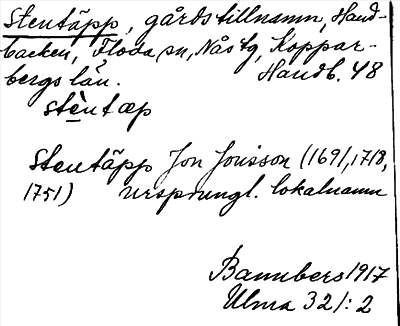 Stentäpp, gårdstillnamn, Hand-
backen, Floda sn, Nås tg, Koppar-
bergs län. Handb. 48
stèntæp
Stentäpp Jon Jonsson (1691, 1718,
1751) ursprungl. lokalnamn
Bannbers 1917
Ulma 321:2